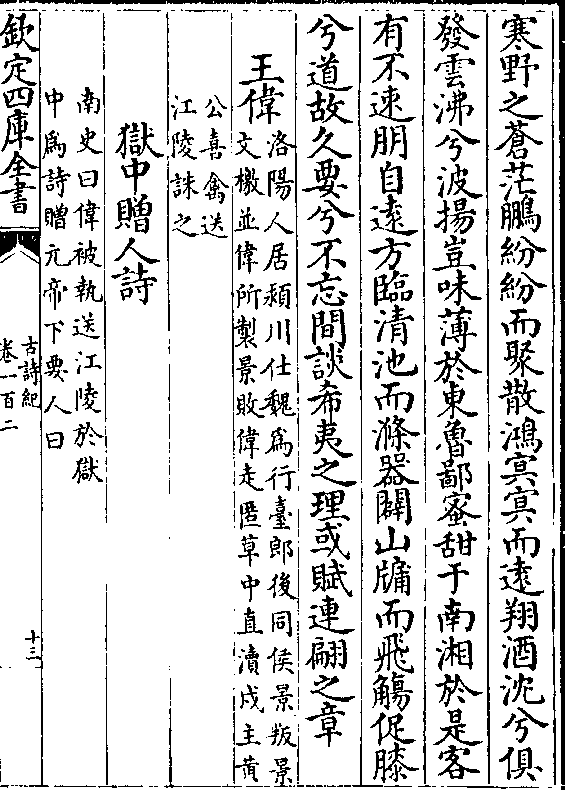 寒野之蒼茫鵬紛紛而聚散鴻㝠㝠而遠翔酒沈兮俱
發雲沸兮波揚豈味薄於東魯鄙蜜甜于南湘於是客
有不速朋自遠方臨清池而滌器闢山牖而飛觴促膝
兮道故久要兮不忘間談希夷之理或賦連翩之章
王偉
洛陽人居潁川仕魏爲行臺郎後同侯景叛景
文檄並偉所製景敗偉走匿草中直瀆戍主黄
公喜禽送
江陵誅之
獄中贈人詩
南史曰偉被執送江陵於獄
中爲詩贈元帝下要人曰
欽定四庫全書
古詩紀
卷一百二
十三